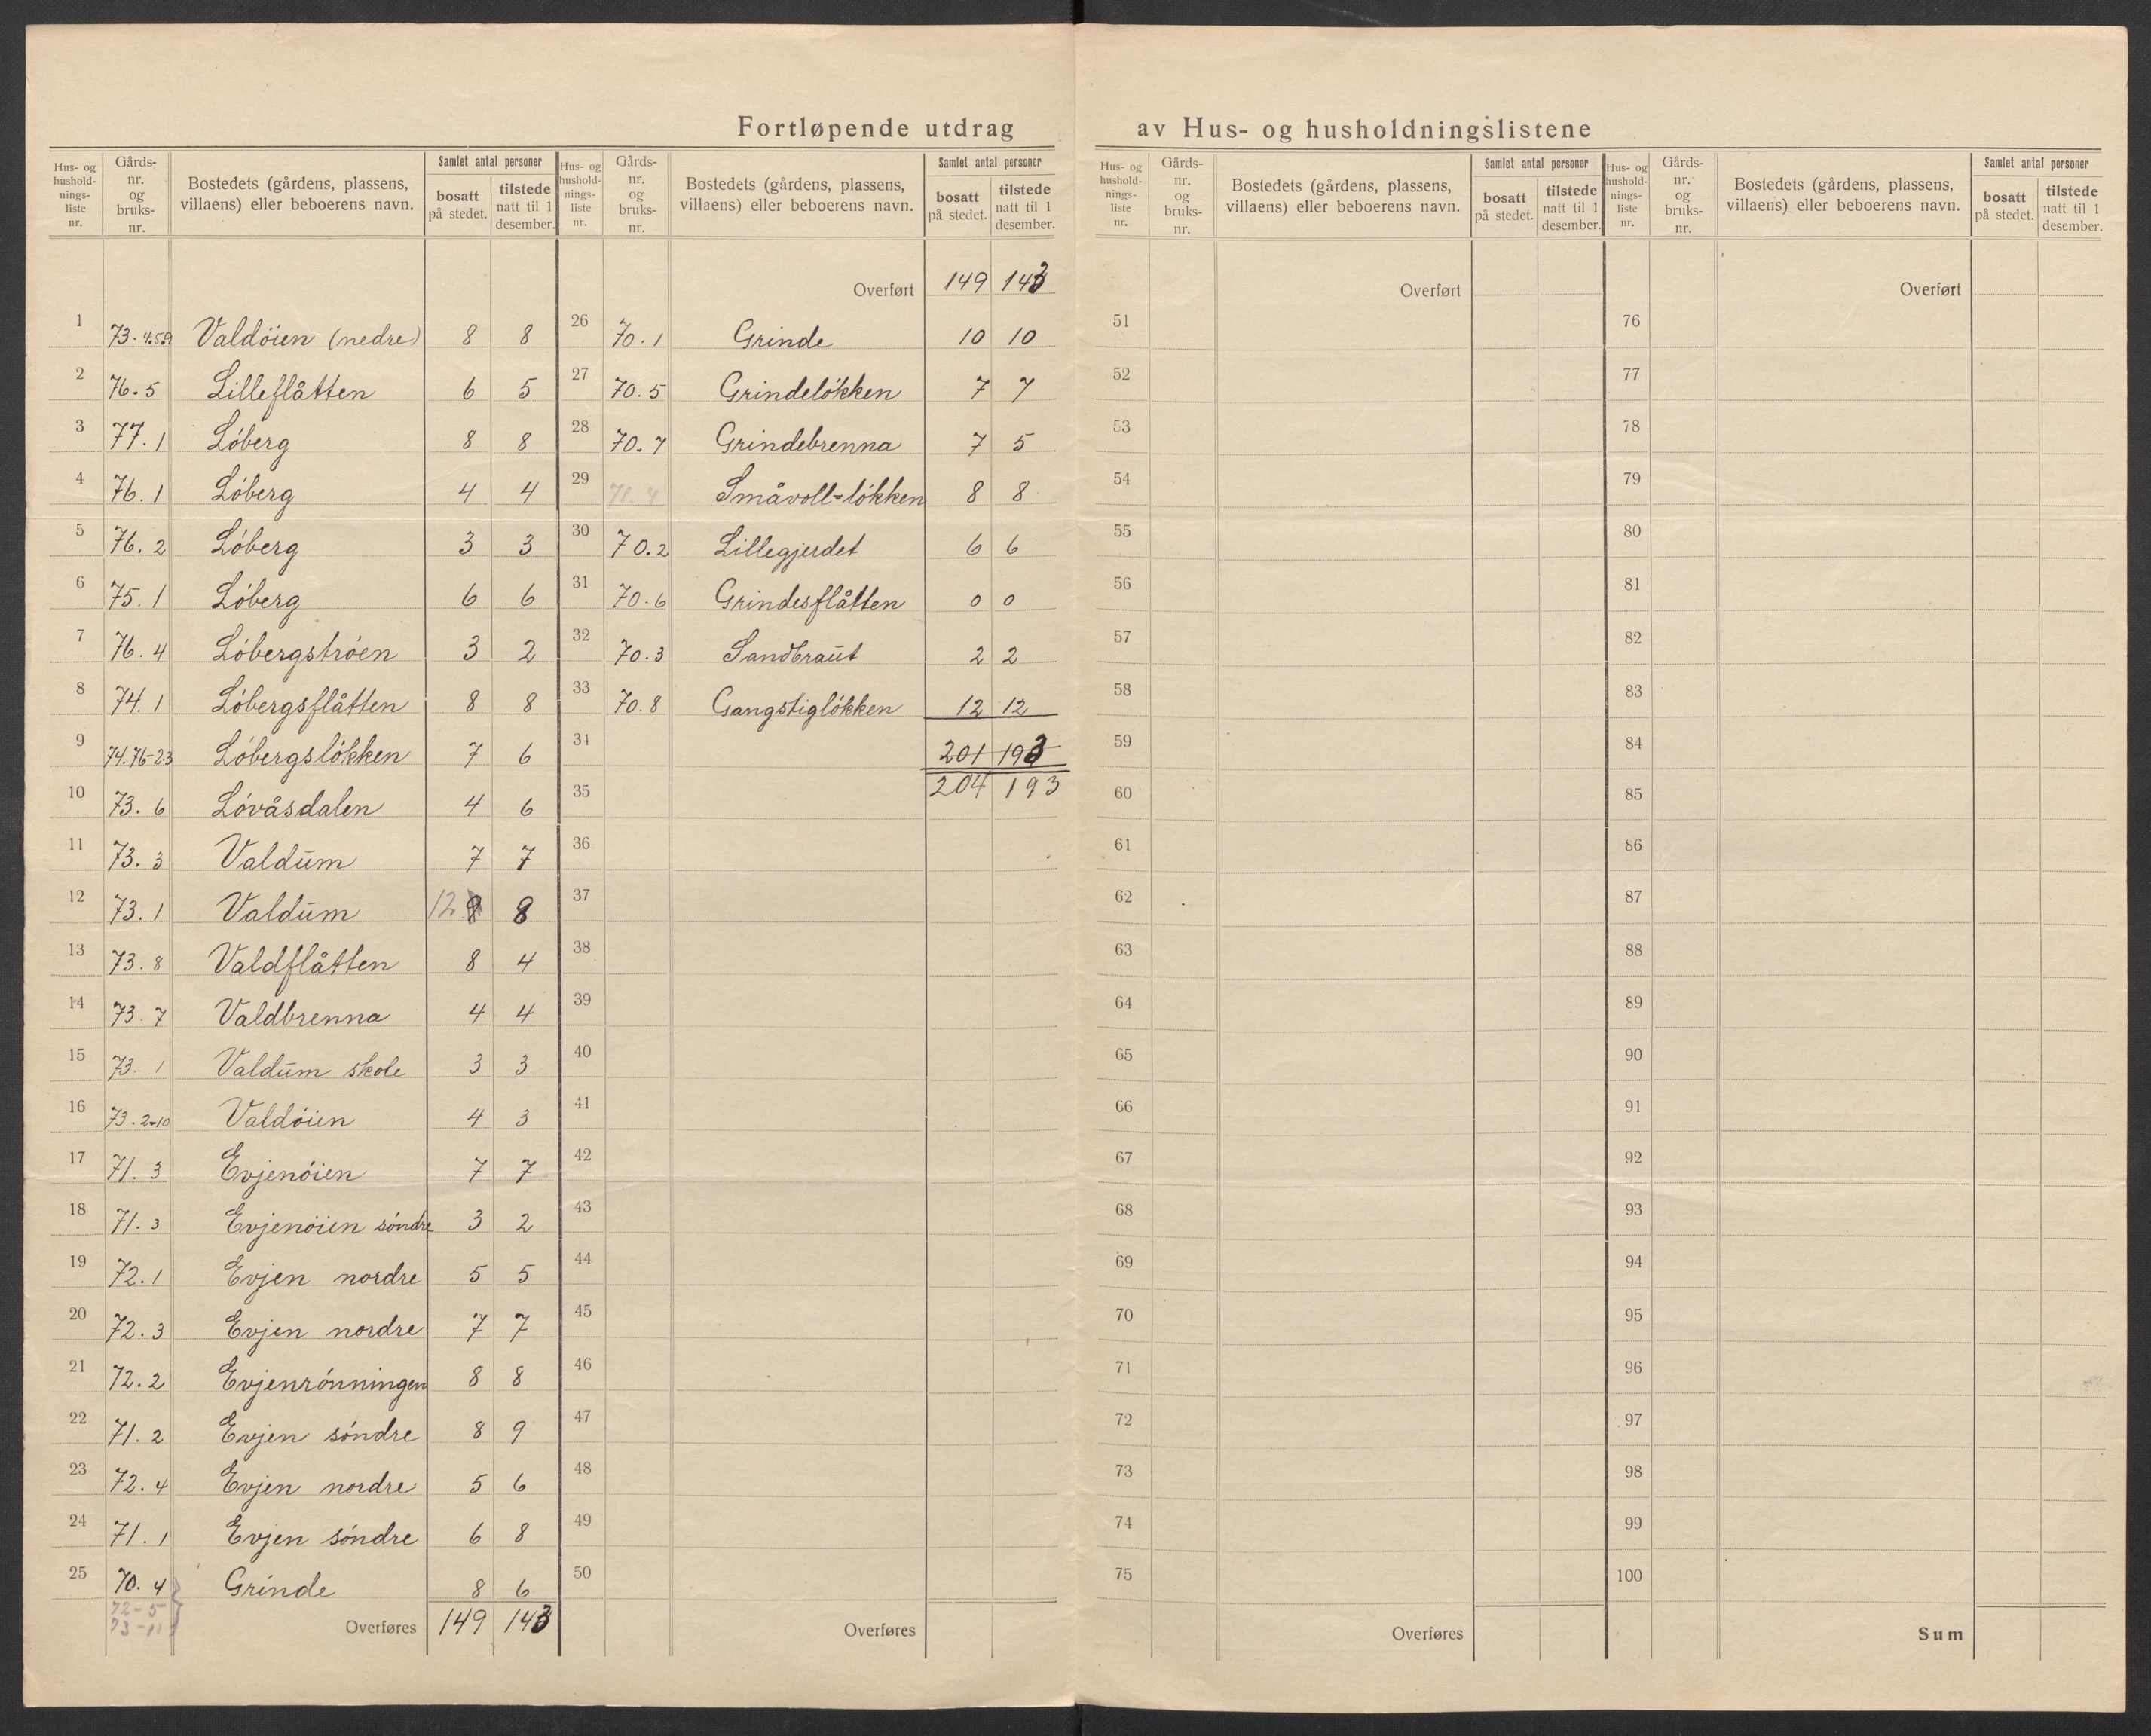 Fortløpende utdrag av Hus- og husholdningslistene
Hus- og husholdnings-liste nr. | Gårds-nr. og bruks-nr. | Bostedets (gårdens, plassens, villaens) eller beboerens navn. | Samlet antal personer | bosatt på stedet. | tilstede natt til 1 desember.
1 73. 4.5.9 Valdöien (nedre) 8 8
2 76.5 Lilleflåtten 6 5
3 77.1 Löberg 8 8
4 76.1 Löberg 4 4
5 76.2 Löberg 3 3
6 75.1 Löberg 6 6
7 76.4 Löbergströen 3 2
8 74.1 Löbergsflåtten 8 8
9 74.76-2.3 Löbergslökken 7 6
10 73.6 Lövåsdalen 4 6
11 73.3 Valdum 7 7
12 73.1 Valdum 12 8
13 73.8 Valdflåtten 8 4
14 73.7 Valdbrenna 4 4
15 73.1 Valdum skole 3 3
16 73.2-10 Valdöien 4 3
17 71.3 Evjenöien 7 7
18 71.3 Evjenöien söndre 3 2
19 72.1 Evjen nordre 5 5
20 72.3 Evjen nordre 7 7
21 72.2 Evjenrönningen 8 8
22 71.2 Evjen söndre 8 9
23 72.4 Evjen nordre 5 6
24 71.1 Evjen söndre 6 8
25 70.4 Grinde 8 6
72-5
73-11
Overføres 149 143
Hus- og husholdnings-liste nr. | Gårds-nr. og bruks-nr. | Bostedets (gårdens, plassens, villaens) eller beboerens navn. | Samlet antal personer | bosatt på stedet. | tilstede natt til 1 desember.
Overført 149 143
26 70.1 Grinde 10 10
27 70.5 Grindelökken 7 7
28 70.7 Grindebrenna 7 5
29 71.4 Småvoll=lökken 8 8
30 70.2 Lillegjerdet 6 6
31 70.6 Grindesflåtten 0 0
32 70.3 Sandbraut 2 2
33 70.8 Gangstiglökken 12 12
34 201 193
35 204 193
36
37
38
39
40
41
42
43
44
45
46
47
48
49
50
Overføres
Hus- og husholdnings-liste nr. | Gårds-nr. og bruks-nr. | Bostedets (gårdens, plassens, villaens) eller beboerens navn. | Samlet antal personer | bosatt på stedet. | tilstede natt til 1 desember.
Overført
51
52
53
54
55
56
57
58
59
60
61
62
63
64
65
66
67
68
69
70
71
72
73
74
75
Overføres
Hus- og husholdnings-liste nr. | Gårds-nr. og bruks-nr. | Bostedets (gårdens, plassens, villaens) eller beboerens navn. | Samlet antal personer | bosatt på stedet. | tilstede natt til 1 desember.
Overført
76
77
78
79
80
81
82
83
84
85
86
87
88
89
90
91
92
93
94
95
96
97
98
99
100
Sum